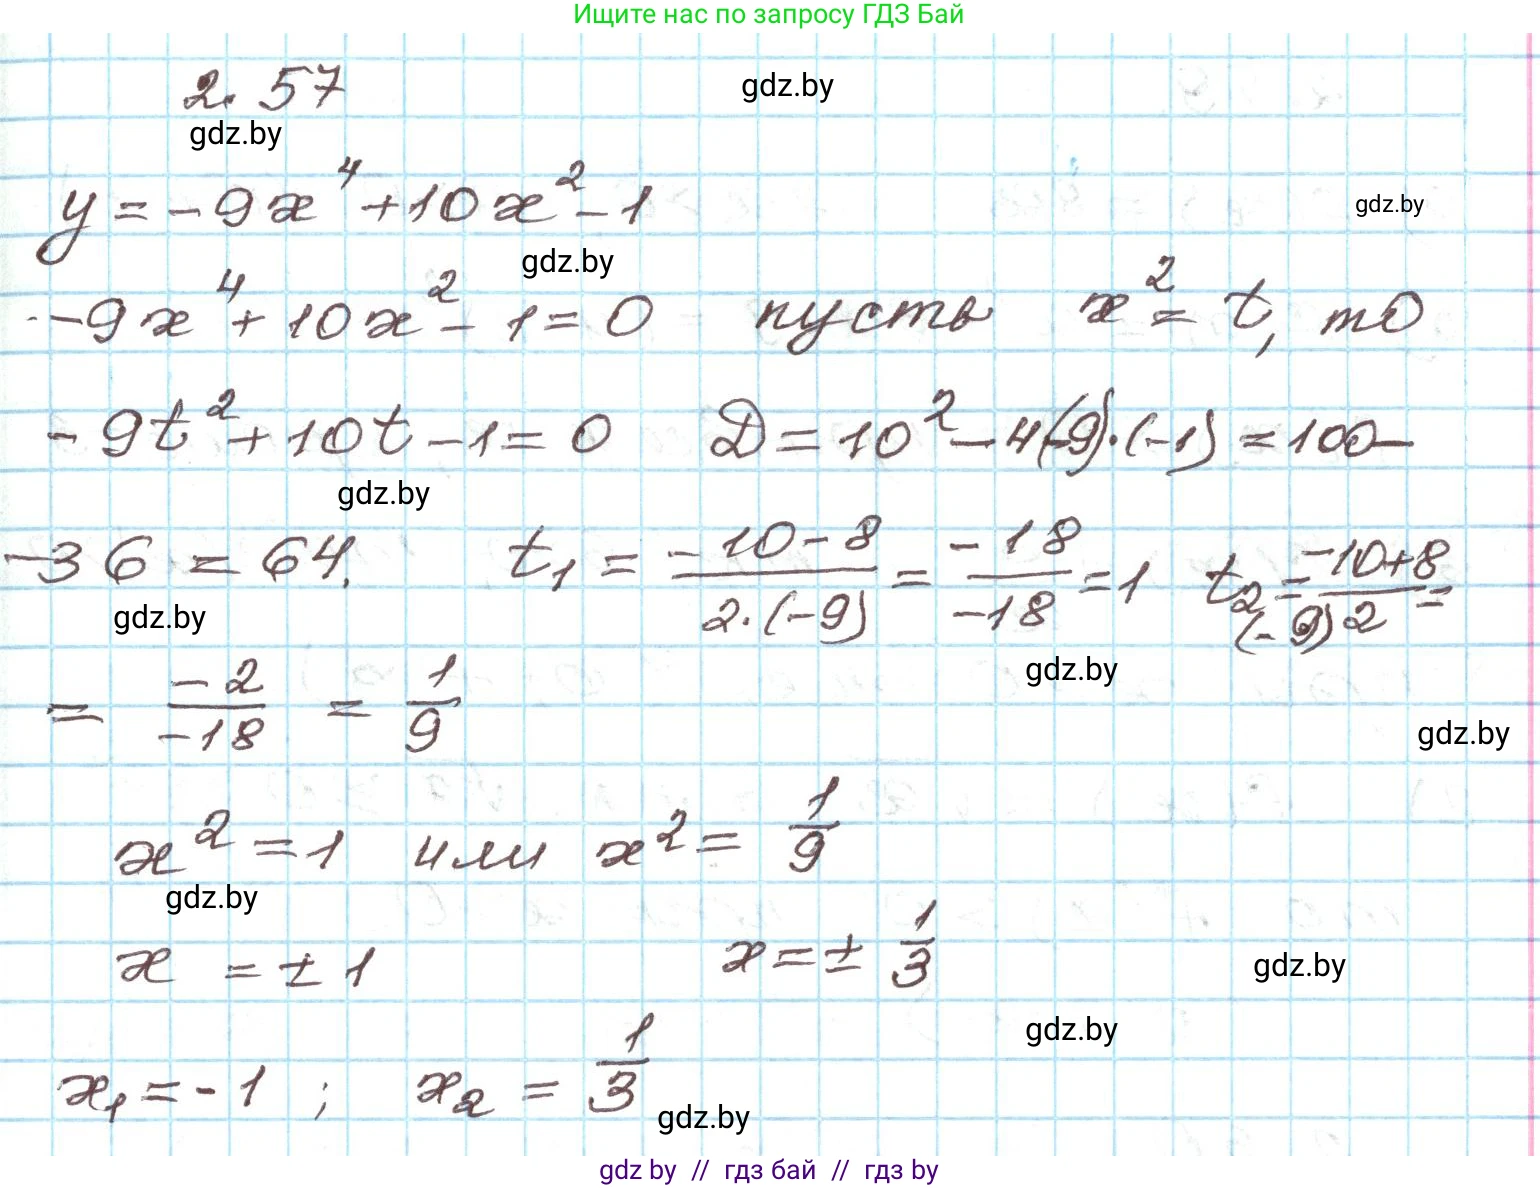 Ищите нас по запросу ГДЗ Бай
2. 57
gdz.by
gdz.by
y = -9x⁴ + 10x² - 1
gdz.by
gdz.by
-9x⁴ + 10x² - 1 = 0 пусть x² = t, то
-9t² + 10t - 1 = 0 D = 10² - 4(-9)·(-1) = 100 -
gdz.by
-36 = 64. t₁ = (-10 - 8)/(2·(-9)) = -18/-18 = 1 t₂ = (-10+8)/((-9)2) =
gdz.by
gdz.by
= -2/-18 = 1/9
gdz.by
x² = 1 или x² = 1/9
gdz.by
x = ± 1 x = ± 1/3
gdz.by
gdz.by
x₁ = -1 ; x₂ = 1/3
gdz.by
gdz by // гдз бай // гдз by